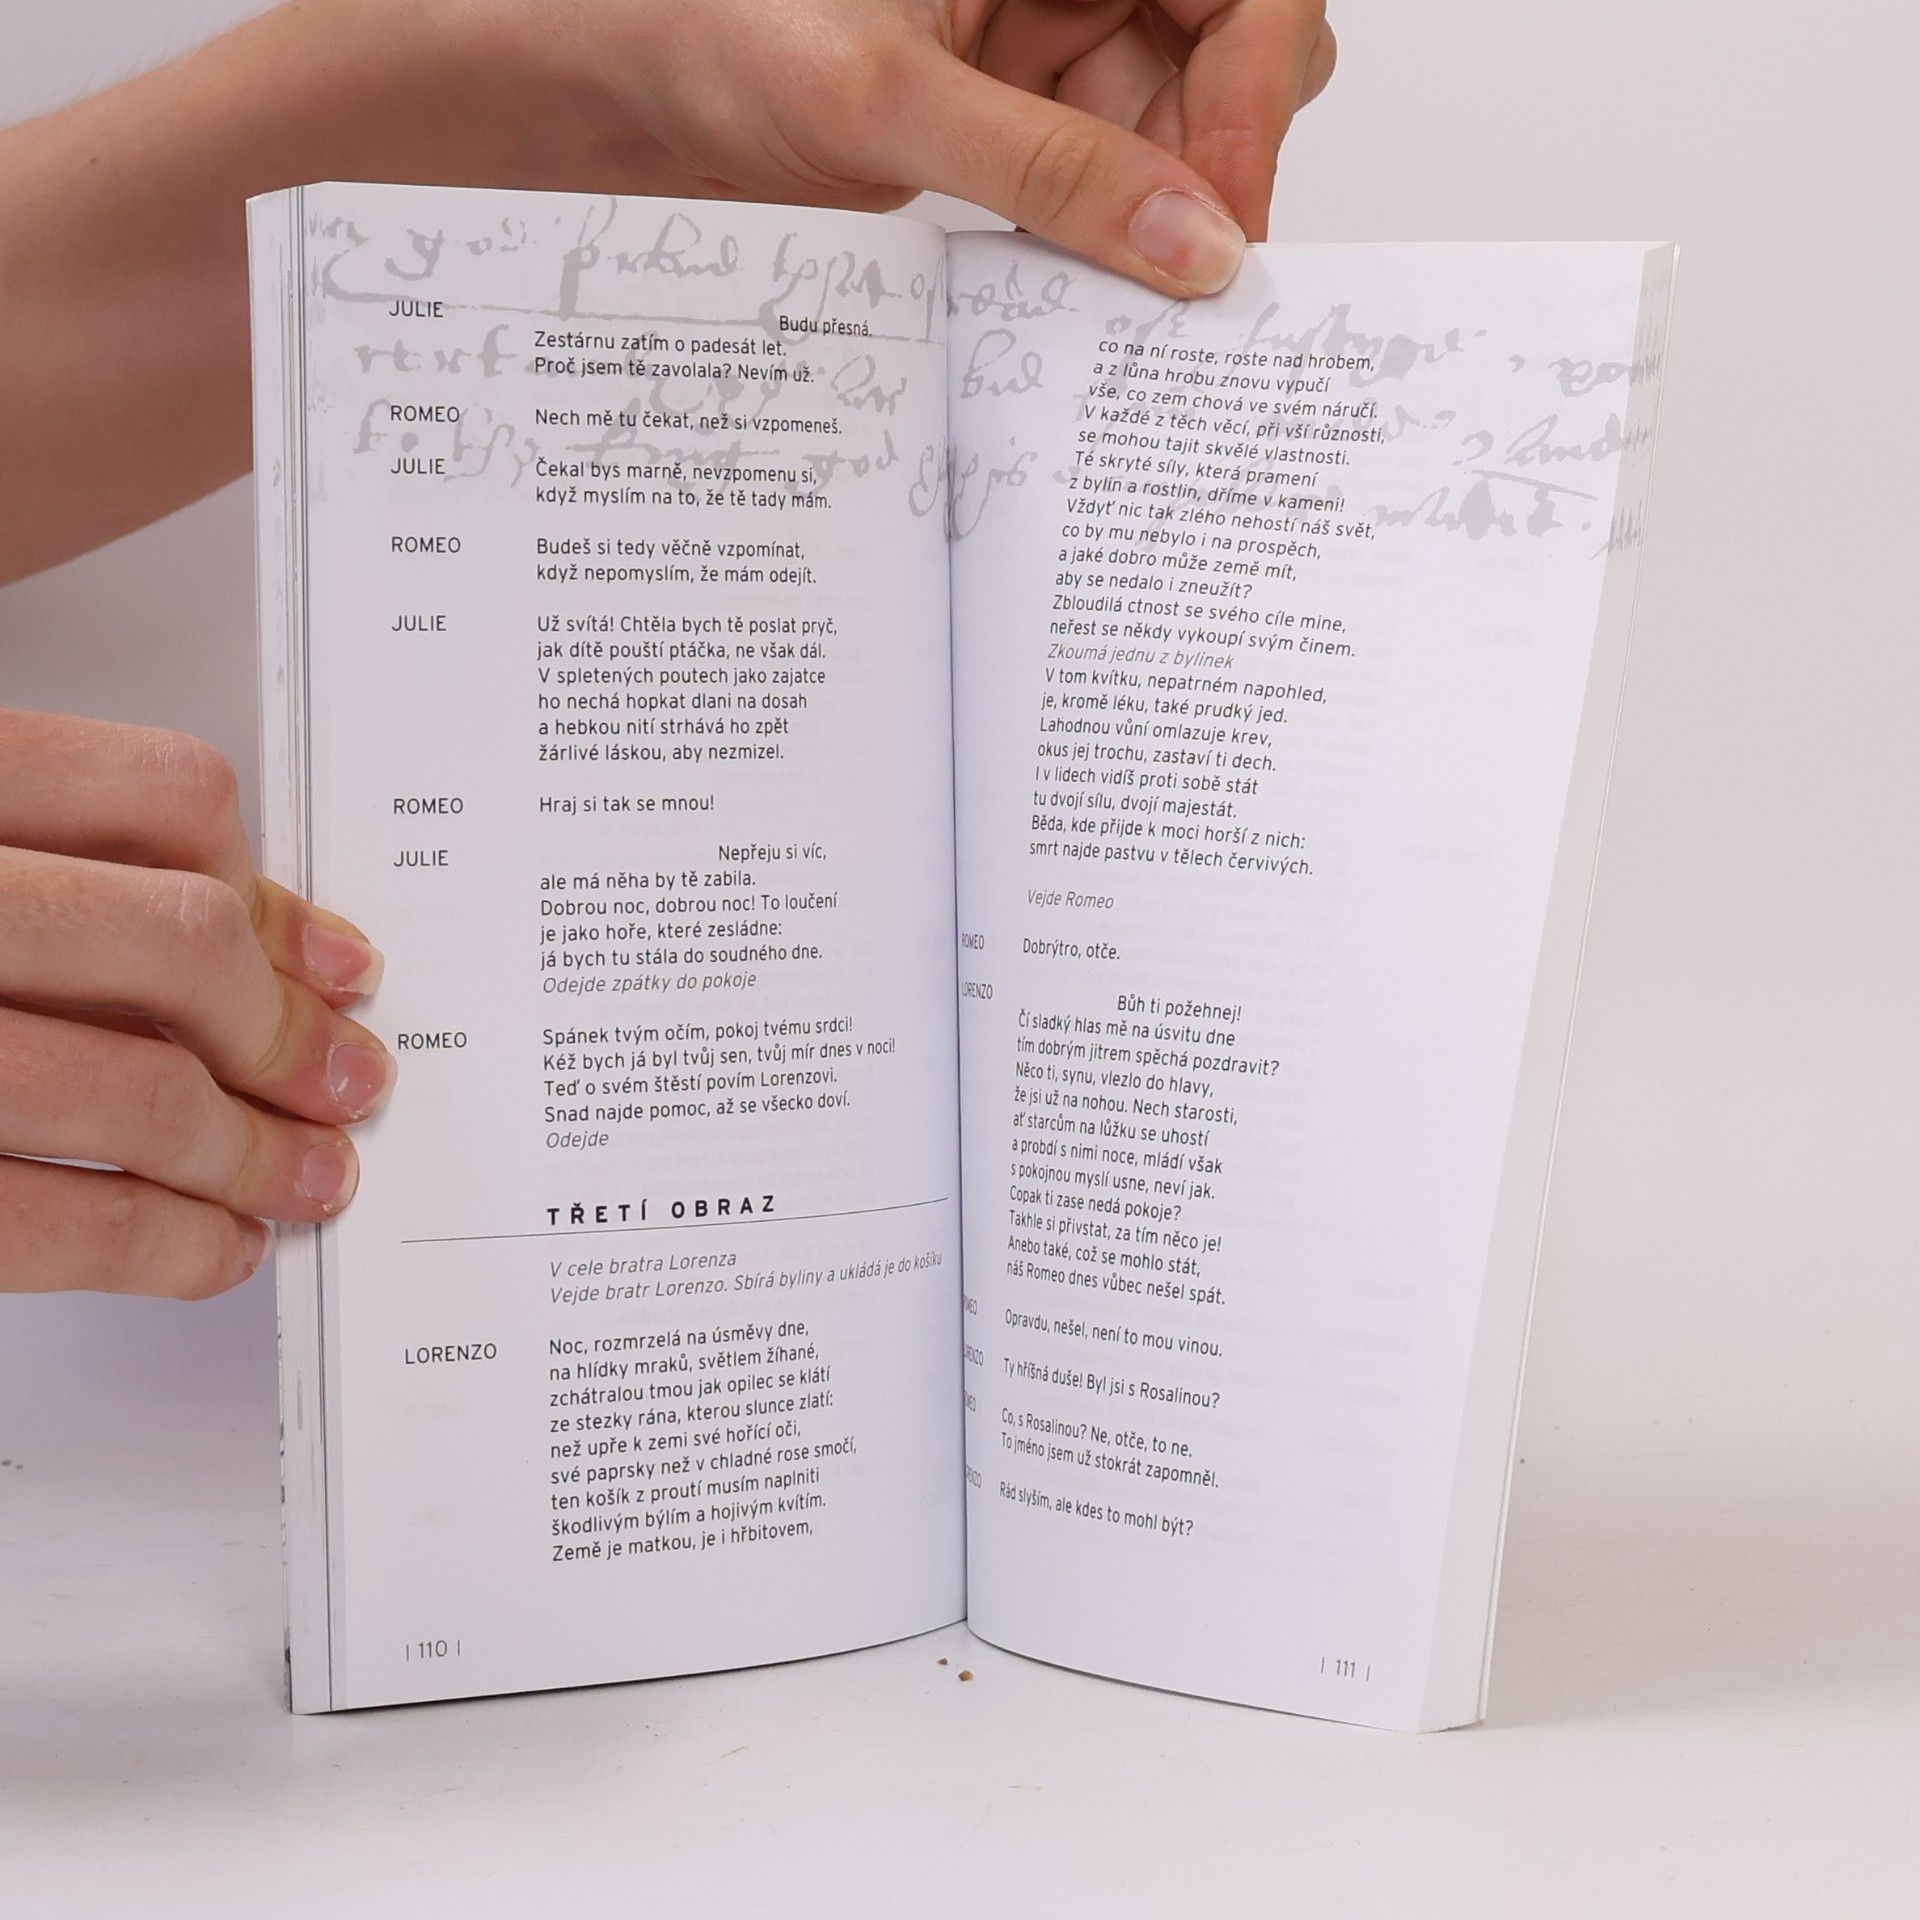 JULIE Budu přesná.
Zestárnu zatím o padesát let.
Proč jsem tě zavolala? Nevím už.
ROMEO Nech mě tu čekat, než si vzpomeneš.
JULIE Čekal bys marně, nevzpomenu si,
když myslím na to, že tě tady mám.
ROMEO Budeš si tedy věčně vzpomínat,
když nepomyslím, že mám odejít.
JULIE Už svítá! Chtěla bych tě poslat pryč,
jak dítě pouští ptáčka, ne však dál.
V spletených poutech jako zajatce
ho nechá hopkat dlani na dosah
a hebkou nití strhává ho zpět
žárlivé láskou, aby nezmizel.
ROMEO Hraj si tak se mnou!
JULIE Nepřeju si víc,
ale má něha by tě zabila.
Dobrou noc, dobrou noc! To loučení
je jako hoře, které zesládne:
já bych tu stála do soudného dne.
Odejde zpátky do pokoje
ROMEO Spánek tvým očím, pokoj tvému srdci!
Kéž bych já byl tvůj sen, tvůj mír dnes v noci!
Teď o svém štěstí povím Lorenzovi.
Snad najde pomoc, až se všecko doví.
Odejde
TŘETÍ OBRAZ
V cele bratra Lorenza
Vejde bratr Lorenzo. Sbírá byliny a ukládá je do košíku
LORENZO Noc, rozmrzelá na úsměvy dne,
na hlídky mraků, světlem žíhané,
zchátralou tmou jak opilec se klátí
ze stezky rána, kterou slunce zlatí:
než upře k zemi své hořící oči,
své paprsky než v chladné rose smočí,
ten košík z proutí musím naplniti
škodlivým býlím a hojivým kvítím.
Země je matkou, je i hřbitovem,
| 110 |
co na ní roste, roste nad hrobem,
a z lůna hrobu znovu vypučí
vše, co zem chová ve svém náručí.
V každé z těch věcí, při vší různosti,
se mohou tajit skvělé vlastnosti.
Té skryté síly, která pramení
z bylin a rostlin, dříme v kameni!
Vždyť nic tak zlého nehostí náš svět,
co by mu nebylo i na prospěch,
a jaké dobro může země mít,
aby se nedalo i zneužít?
Zbloudilá ctnost se svého cíle mine,
neřest se někdy vykoupí svým činem.
Zkoumá jednu z bylinek
V tom kvítku, nepatrném napohled,
je, kromě léku, také prudký jed.
Lahodnou vůní omlazuje krev,
okus jej trochu, zastaví ti dech.
I v lidech vidíš proti sobě stát
tu dvojí sílu, dvojí majestát.
Běda, kde přijde k moci horší z nich:
smrt najde pastvu v tělech červivých.
Vejde Romeo
ROMEO Dobrýtro, otče.
LORENZO Bůh ti požehnej!
Čí sladký hlas mě na úsvitu dne
tím dobrým jitrem spěchá pozdravit?
Něco ti, synu, vlezlo do hlavy,
že jsi už na nohou. Nech starosti,
ať starcům na lůžku se uhostí
a probdí s nimi noce, mládí však
s pokojnou myslí usne, neví jak.
Copak ti zase nedá pokoje?
Takhle si přivstat, za tím něco je!
Anebo také, což se mohlo stát,
náš Romeo dnes vůbec nešel spát.
Opravdu, nešel, není to mou vinou.
Ty hříšná duše! Byl jsi s Rosalinou?
Co, s Rosalinou? Ne, otče, to ne.
To jméno jsem už stokrát zapomněl.
Rád slyším, ale kdes to mohl být?
| 111 |